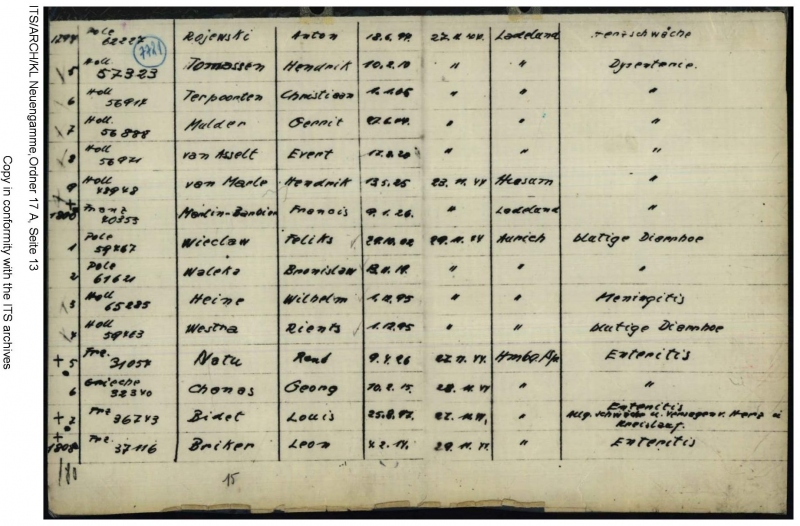 ITS/ARCH/KL Neuengamme,Ordner 17 A, Seite 13
Copy in conformity with the ITS archives
1794 Pole 62227 Rajewski Anton 18.6. 27.11.44. Ladelund Herzschwäche
7721
5 Holl. 57323 Tomassen Hendrik 10.2.10 " " Dysenterie.
6 Holl 56917 Terpoorten Christiaan " " "
7 Holl. 56888 Mulder Gerrit 27.6.04. " " "
8 Holl 56921 van Asselt Evert " " "
9 Holl 48948 van Marle Hendrik 13.5.25 23.11.44 Husum "
+ 1800 Franz 40353 Marlin-Barbier Francis 9.1.26. " Ladelund "
1 Pole 59267 Wieclaw Feliks 29.11.44 Aurich blutige Diarrhoe
2 Pole 61621 Waleka Bronislaw " " "
3 Holl 65285 Heine Wilhelm 1.12.95 " " Meningitis
4 Holl 59463 Westra Rients 1.12.95 " " blutige Diarrhoe
+ 5 Frz. 31057 Natu René 9.4.26 27.11.44. Enteritis
6 Grieche 32340 Chonas Georg 10.2.15. 28.11.44 " "
+ 7 Frz 36743 Bidet Louis 27.11.44. " Enteritis
Allg. Schwäche u. Versagen v. Herz u
Kreislauf.
+ 1808 Frz. 37116 Briker Leon 29.11.44. " Enteritis
180
15